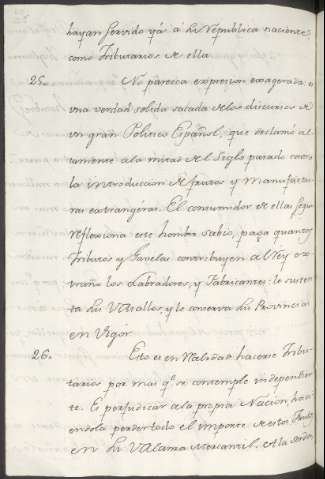 hayan servido yá à la Republica naciente,
como Tributarios de ella
25. No parezca expresion exagerada, es
una verdad solida sacada de los discursos de
un gran Politico Español, que declamó al-
tamente a la mitad del Siglo pasado contra
la introduccion de frutos y manufactu-
ras extrangéras. El consumidor de ellas, segun
reflexiona este hombre sabio, paga quantos
tributos y gavelas contribuyen al Rey ex-
traño los Labradores, y Fabricantes: le susten-
ta sus Vasallos, y le conserva sus Provincias
en Vigor
26. Esto es en realidad hacerse Tribu-
tarios por mas qe. se contemple independien-
te. Es perjudicar a la propia Nacion, ha-
ciendola perder todo el importe de estos
en la Valanza Mercantil. A la